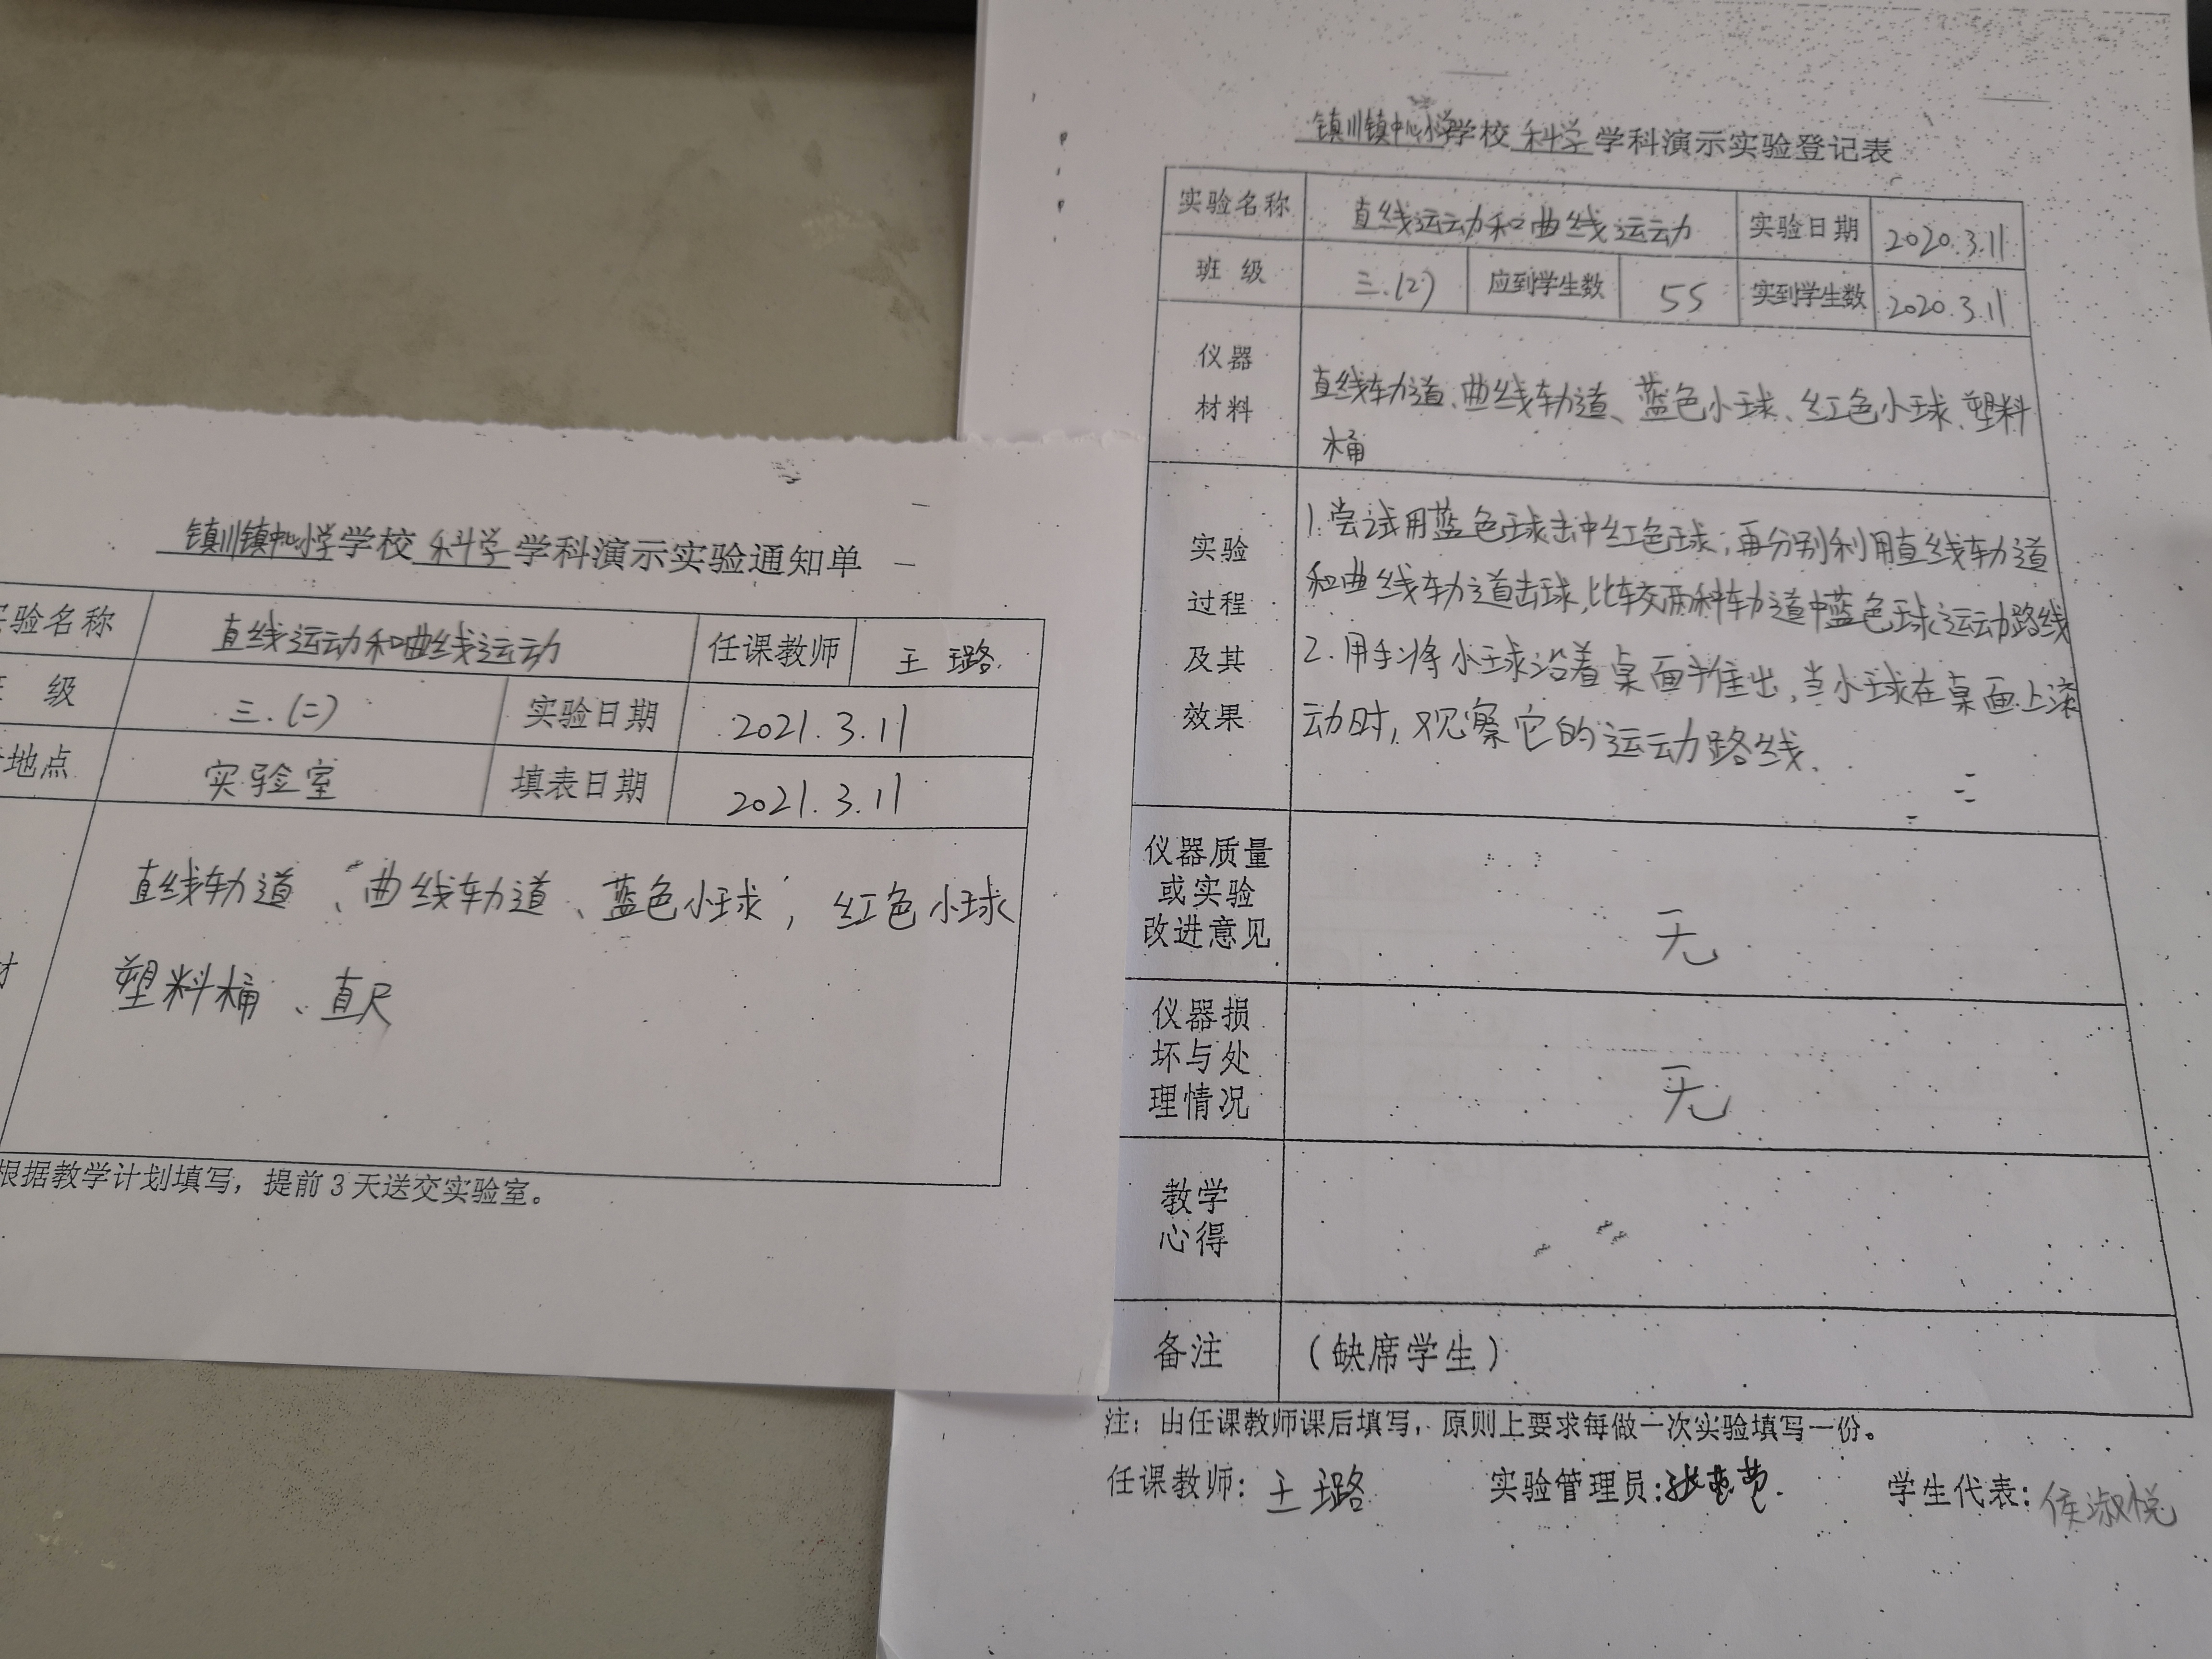 镇川镇中心小学学校 科学 学科演示实验通知单
验名称 直线运动和曲线运动 任课教师 王璐
级 三.(二) 实验日期 2021.3.11
地点 实验室 填表日期 2021.3.11
直线轨道、曲线轨道、蓝色小球, 红色小球
塑料桶、直尺
根据教学计划填写，提前3天送交实验室。
镇川镇中心小学学校 科学 学科演示实验登记表
实验名称 直线运动和曲线运动 实验日期 2020.3.11
班 级 三.(2) 应到学生数 55 实到学生数 2020.3.11
仪器
材料
直线轨道、曲线轨道、蓝色小球、红色小球、塑料
桶
实验
过程
及其
效果
1.尝试用蓝色球击中红色球;再分别利用直线轨道
和曲线轨道击球,比较两种轨道中蓝色球运动路线
2.用手将小球沿着桌面推出,当小球在桌面上滚
动时,观察它的运动路线.
仪器质量
或实验
改进意见
无
仪器损
坏与处
理情况
无
教学
心得
备注 （缺席学生）
注：由任课教师课后填写，原则上要求每做一次实验填写一份。
任课教师: 王璐 实验管理员: 学生代表: 侯淑悦